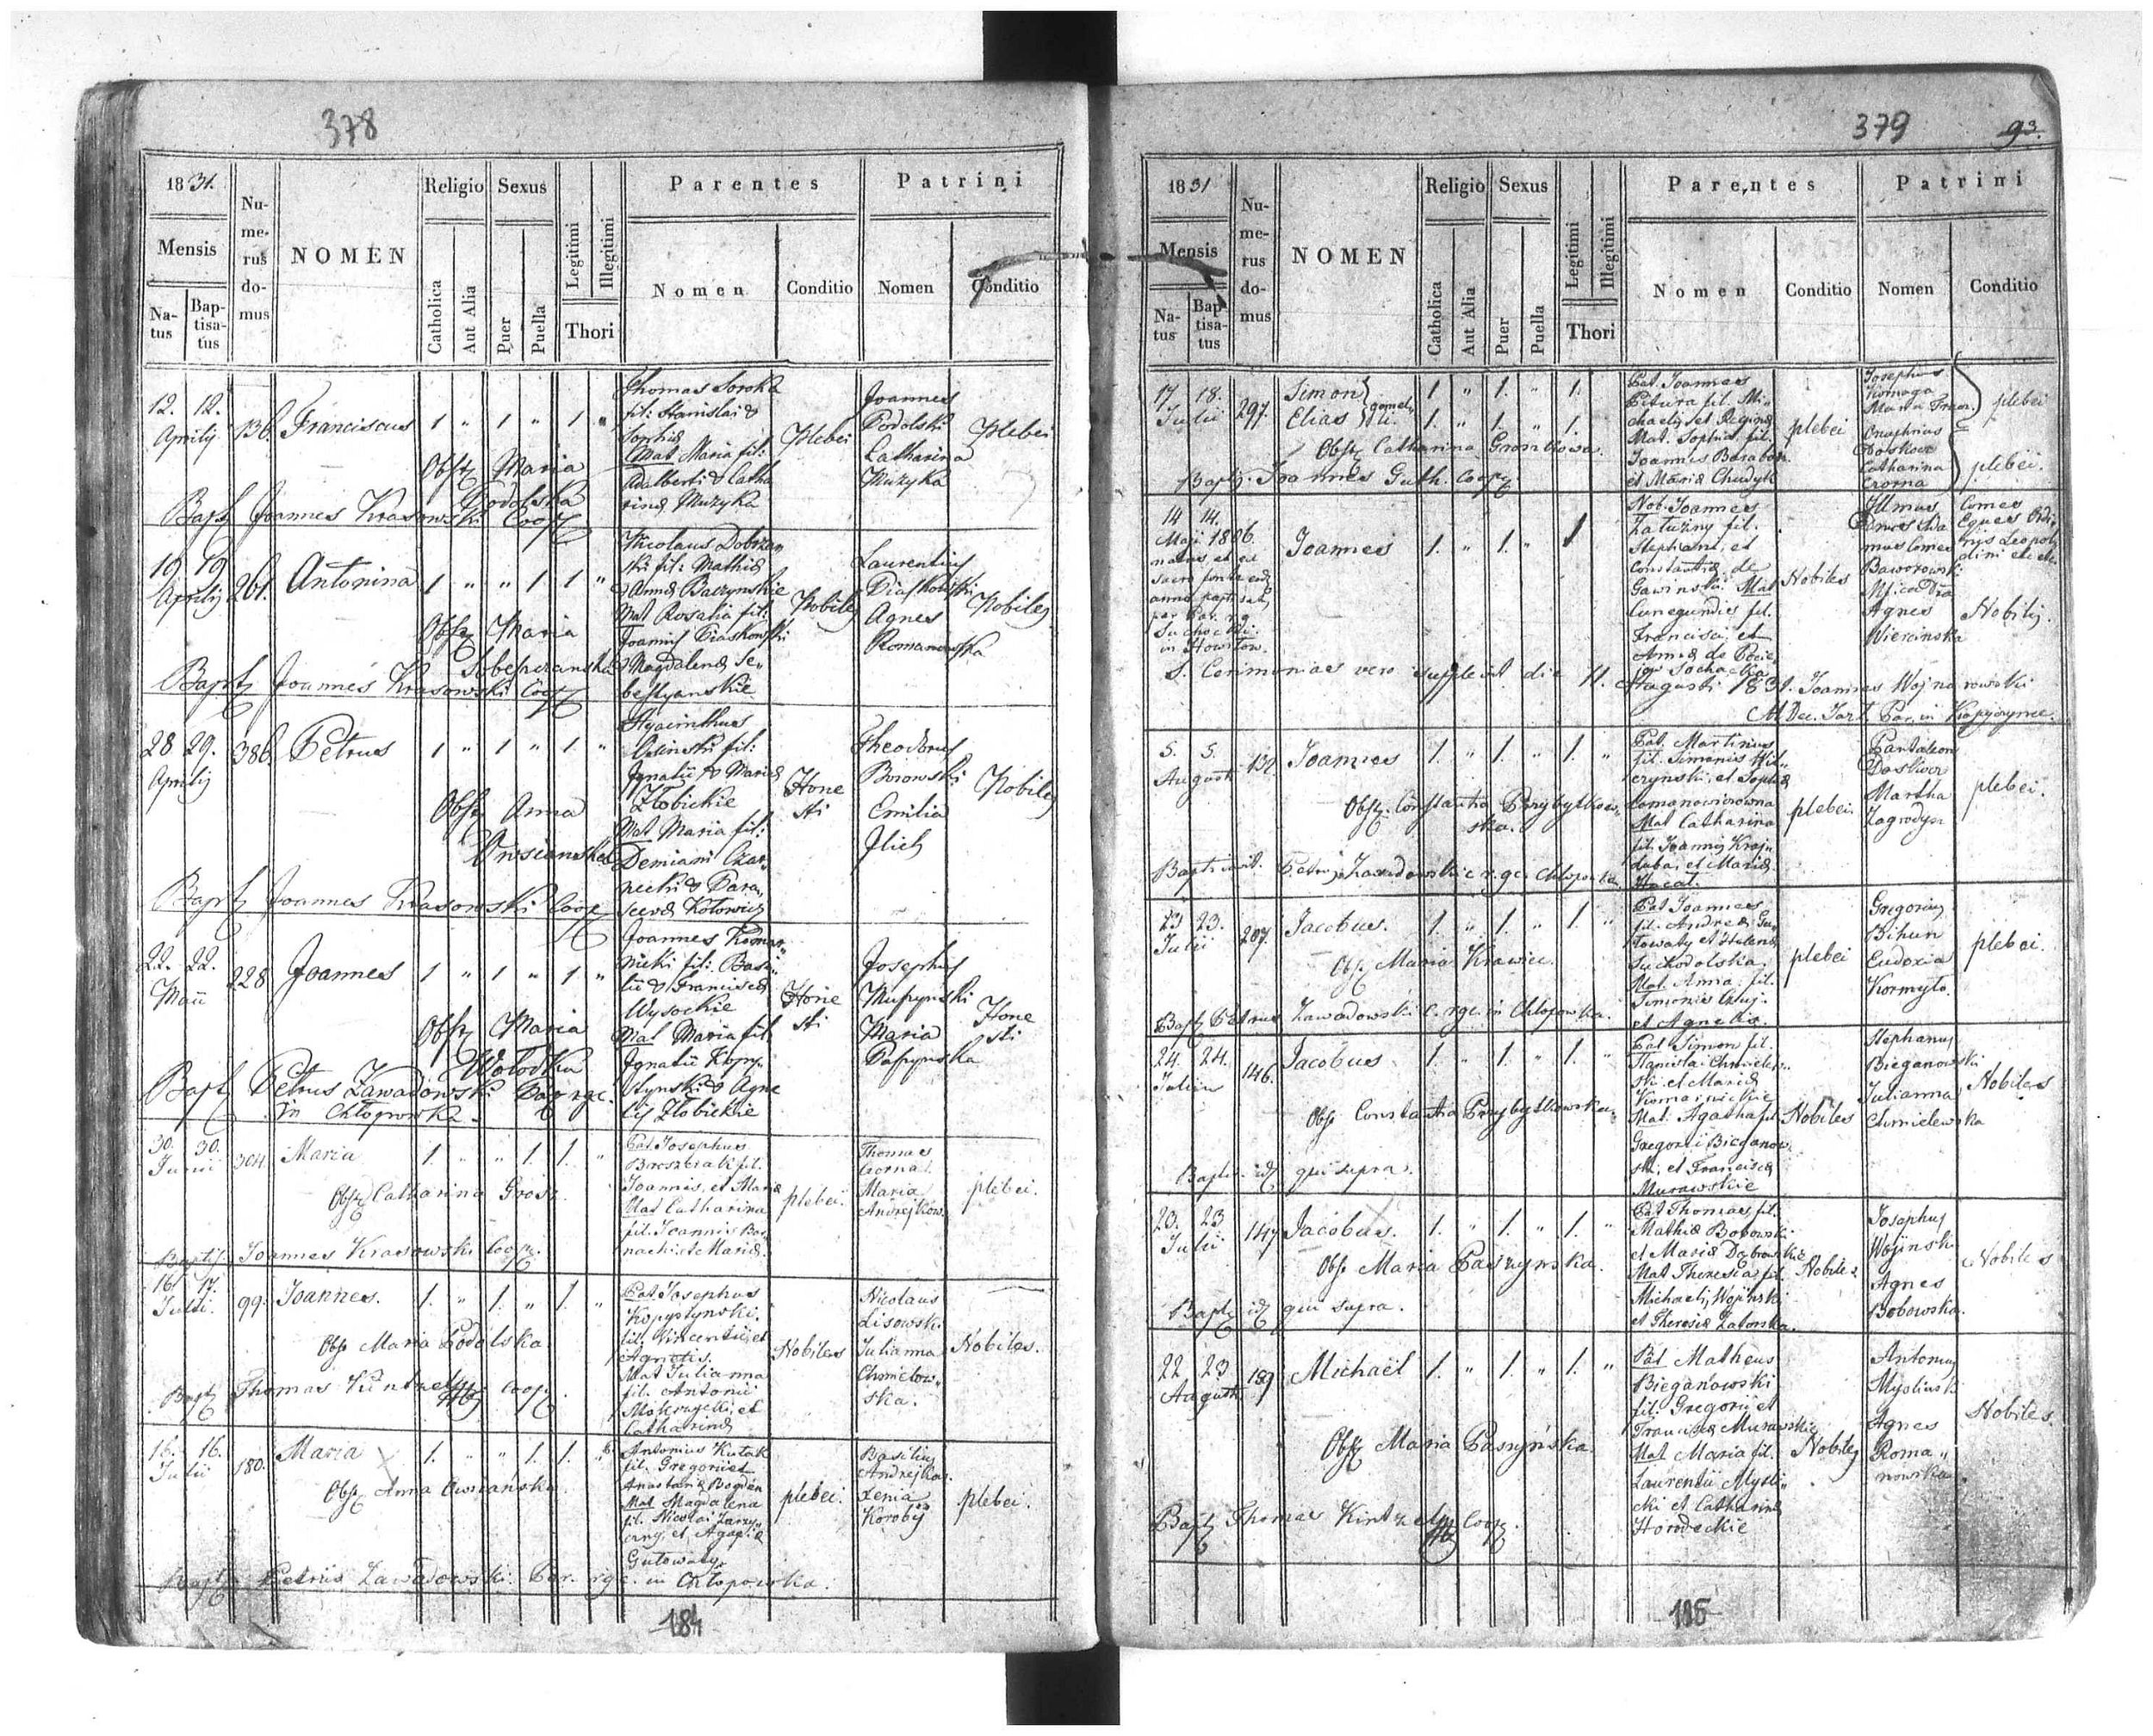 378
1831.
Mensis
Na-
tus
Bap-
tisa-
tus
Nu-
me-
rus
do-
mus
NOMEN
Religio
Catholica
Aut Alia
Sexus
Puer
Puella
Legitimi
Illegitimi
Thori
Parentes
Nomen
Conditio
Patrini
Nomen
Conditio
12. 12.
Aprilis
136. Franciscus 1 " 1 " 1 "
Thomas Soroka
fil: Stanislai &
Sophiæ
Mat Maria fil:
Adalberti & Catha
rinæ Muzyka
Plebei
Joannes
Podolski
Catharina
Muzyka
Plebei
Obst Maria
Podolska
Bapt Joannes Krasowski Coop
19 19
Aprilis
261. Antonina 1 " " 1 1 "
Nicolaus Dobrzan
ski fil: Mathiæ
& Annæ Baczynskie
Mat Rosalia fil:
Joannis Piaskowski
& Magdalenæ Se
bestyanskie
Nobiles
Laurentius
Piaskowski
Agnes
Romanowska
Nobiles
Obst Maria
Bapt Joannes Krasowski Coop
28 29.
Aprilis
386. Petrus 1 " 1 " 1. "
Hyacinthus
Osinski fil:
Ignatii & Mariæ
Złobickie
Mat Maria fil:
Demiani Czar
necki & Para
scevæ Kotowicz
Hone
sti
Theodorus
Borowski
Emilia
Jlich
Nobiles
Obst Anna
Owsianska
Bapt Joannes Krasowski Coop
22. 22.
Maii
228 Joannes 1 " 1 " 1 "
Joannes Komar
nicki fil: Basi
lii & Franciscæ
Wysockie
Mat Maria fil
Ignatii Kopy
stynski & Agne
tis Złobickie
Hone
sti
Josephus
Maria
Hone
sti
Obst Maria
Wołodka
Bapt Petrus Zawadowski Par rgc.
in Chłopowska.
30. 30.
Junii
304. Maria 1. " " 1. 1. "
Pat Josephus
fil.
Joannis, et Mariæ
Mat Catharina
fil. Joannis Bar
nach et Mariæ.
plebei.
Thomas
Czorna
Maria
Andrejkow
plebei.
Obst Catharina Grosz
Baptis. Joannes Krasowski Coop.
16 17.
Julii.
99. Joannes. 1. " 1. " 1. "
Pat Josephus
Kopystynski.
fil. Vincentii, et
Agnetis.
Mat Julianna
fil. Antonii
Mokrzycki, et
Catharinæ
Nobiles
Nicolaus
Lisowski
Julianna
Chmielow
ska.
Nobiles.
Obst Maria Podolska
Bapt Thomas Kintzel Coop.
16. 16.
Julii
180. Maria 1. " " 1. 1. "
Antonius Kutak
fil. Gregorii et
Anastasiæ Bogdan
Mat Magdalena
fil. Nicolai
et Agapiæ
Gutowaty
plebei.
Basilius
Andrejkow.
Xenia
Korobij
plebei.
Obst Anna Owsiańska
Bapt Petrus Zawadowski Par. rgc. in Chłopowska.
184
379
93.
1831
Mensis
Na-
tus
Bap-
tisa-
tus
Nu-
me-
rus
do-
mus
NOMEN
Religio
Catholica
Aut Alia
Sexus
Puer
Puella
Legitimi
Illegitimi
Thori
Parentes
Nomen
Conditio
Patrini
Nomen
Conditio
17 18.
Julii
297. Simon 1 " 1. " 1.
Elias gemelli. 1. " 1. " 1.
Pat. Joannes
Pitura fil. Mi
chaelis et Reginæ
Mat. Sophia fil.
Joannis Baraban
et Mariæ Chudyk
plebei
Josephus
Maria
Onuphrius
Catharina
Czorna
plebei
plebei.
Obst Catharina Groszkowa
Bapti. Joannes Guth. Coop.
14 14.
Maji 1806.
natus et ex
sacro fonte eod
anno baptisat
per Par. rg
Suchocki
in Howiłow.
Joannes 1. " 1. " 1
Nob. Joannes
Załuzny fil.
Stephani et
Constantiæ de
Gawinski Mat
Cunegundis fil.
Francisci et
Annæ de
Sochacka
Nobiles
Illmus
Comes
Baworowski
Agnes
Wiercinska
Comes
Eques Ordi
nis Leopol
dini etc etc
Nobilis.
S. Cerimonias vero supplevit die 11. Augusti 1831. Joannes Wojnarowski
5. 5.
Augusti
132. Joannes 1. " 1. " 1. "
Pat. Martinus
fil. Simonis Wil
czynski, et Sophiæ
Romanowiczowna
Mat Catharina
fil. Joannis Kraj
duba, et Mariæ
Hacał.
plebei.
Pantaleon
Martha
Zagrodya
plebei.
Obst. Constantia Przybytkow
ska.
Baptisavit. Petrus Zawadowski c. rgc. Chłopowka.
23 23.
Julii
207. Jacobus. 1. " 1. " 1. "
Pat Joannes
fil. Andreæ Gu
towaty et Helenæ
Suchodolska.
Mat. Anna. fil.
Simonis
et Agnetis.
plebei
Gregorius
Bihun
Eudoxia
Kormyło.
plebei.
Obst Maria Krawiec.
Bapt Petrus Zawadowski c. rgc. in Chłopowka.
24. 24.
Julii
146. Jacobus 1. " 1. " 1. "
Pat Simon fil.
Stanislai Chmielew
ski et Mariæ
Komarnickie
Mat. Agatha fil.
Gregorii Bieganow
ski, et Franciscæ
Murawskie
Nobiles
Stephanus
Bieganowski
Julianna
Chmielewska
Nobiles
Obst Constantia Przybytkowska.
Bapt. id qui supra.
23. 23
Julii
147 Jacobus. 1. " 1. " 1. "
Pat Thomas fil.
Mathiæ Bobowski
et Mariæ Dąbrowskie
Mat Theresia fil.
Michaelis Wojinski
et Theresiæ Zatorska.
Nobiles
Josephus
Wojinski
Agnes
Bobowska.
Nobiles
Obst Maria Paszynska.
Bapt id qui supra.
22 23
Augusti
189 Michaël 1. " 1. " 1. "
Pat Matheus
Bieganowski
fil. Gregorii et
Franciscæ Murawskie
Mat Maria fil.
Laurentii Mysli
cki et Catharinæ
Horodeckie
Nobiles
Antonius
Agnes
Roma
nowska
Nobiles
Obst Maria Paszyńska
Bapt Thomas Kintzel Coop.